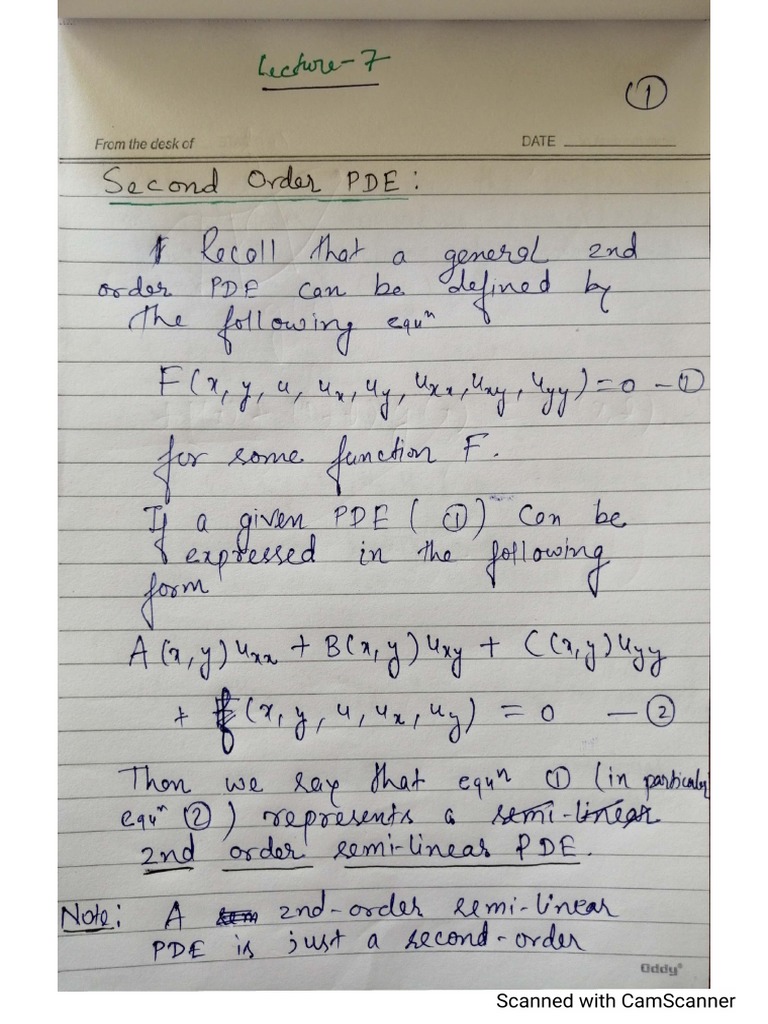 Lecture-7
①
From the desk of
DATE
Second Order PDE:
Recall that a general 2nd
order PDE can be defined by
the following equⁿ
F(x, y, u, uₓ, u_y, uₓₓ, u_xy, u_yy) = 0 — ①
for some function F.
If a given PDE ( ① ) can be
expressed in the following
form
A(x,y)uₓₓ + B(x,y)u_xy + C(x,y)u_yy
+ f(x, y, u, uₓ, u_y) = 0 — ②
Then we say that equⁿ ① (in particular
equⁿ ②) represents a semi-linear
2nd order semi-linear PDE.
Note: A 2nd-order semi-linear
PDE is just a second-order
Oddy
Scanned with CamScanner